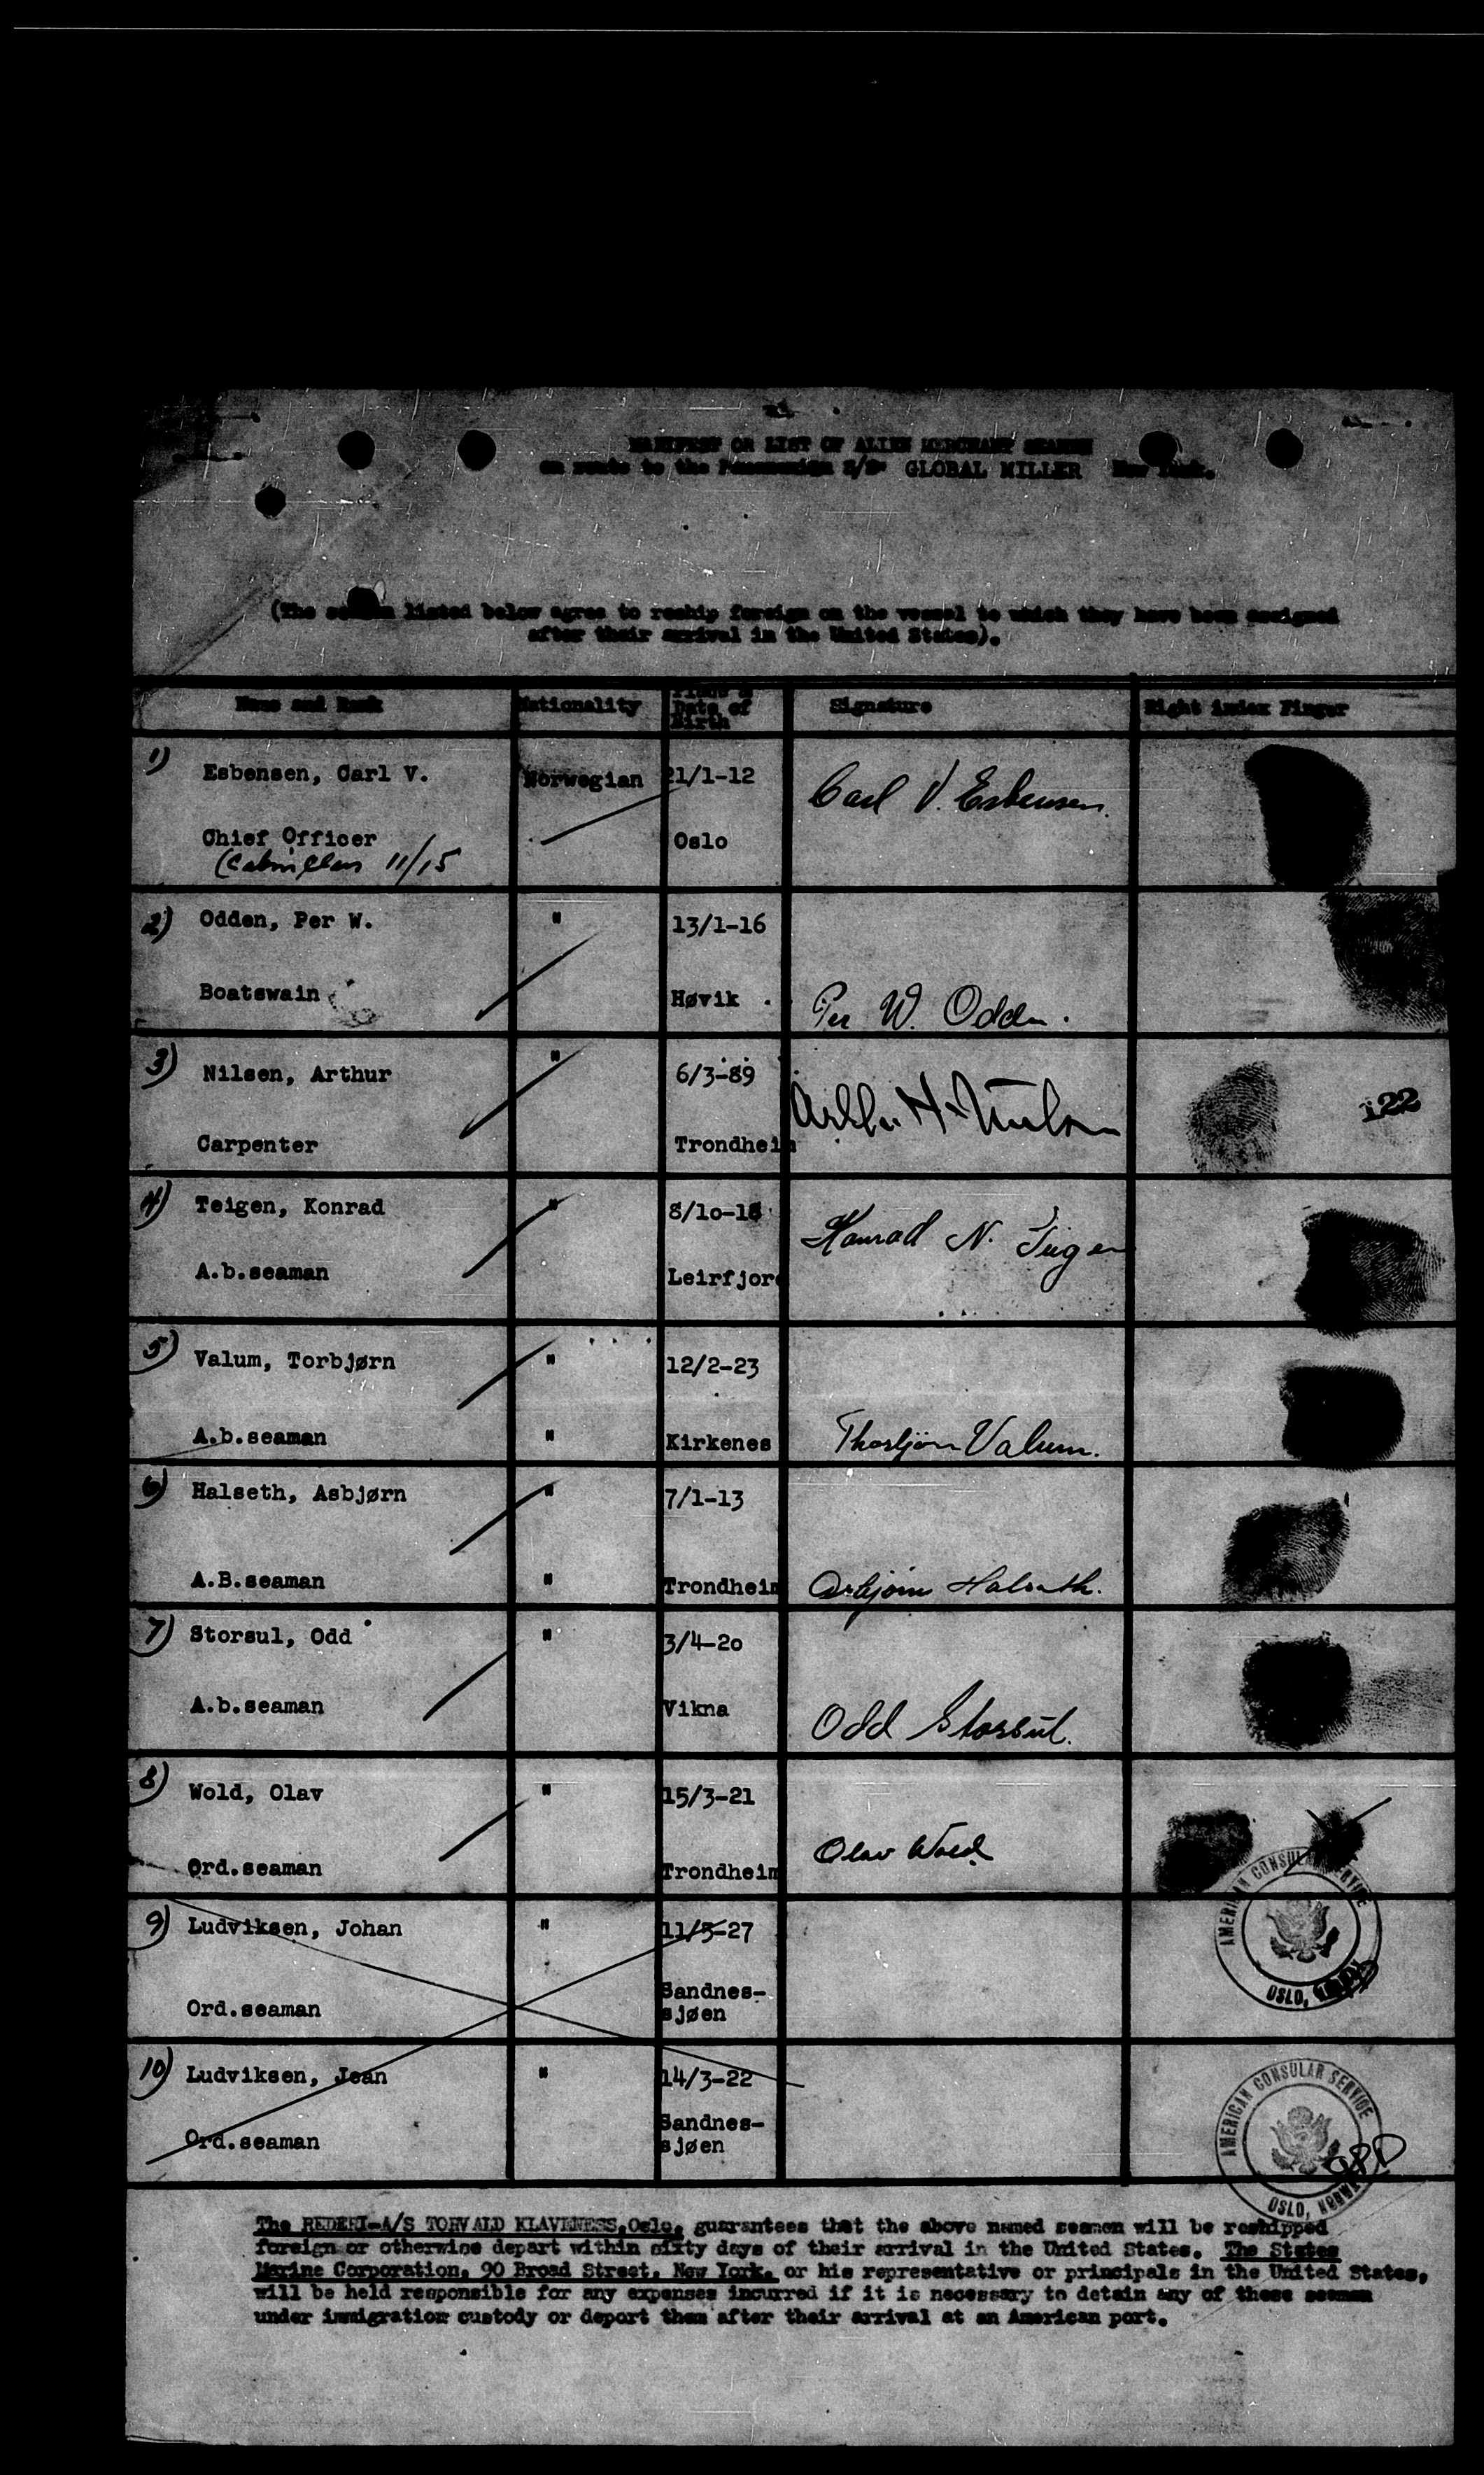 MANIFEST OR LIST OF ALIEN MERCHANT SEAMEN
en route to the Panamanian S/S GLOBAL MILLER New York.
(The seamen listed below agree to reship foreign on the vessel to which they have been assigned
after their arrival in the United States).
Name and Rank Nationality Place & Date of Birth Signature Right index Finger
1) Esbensen, Carl V. Norwegian 21/1-12 Carl V. Esbensen.
Chief Officer Oslo
11/15
2) Odden, Per W. " 13/1-16
Boatswain Høvik Per W. Odden.
3) Nilsen, Arthur " 6/3-89 Arthur H. Nielsen
122
Carpenter Trondheim
4) Teigen, Konrad " 8/10-18 Konrad N. Teigen
A.b.seaman Leirfjord
5) Valum, Torbjørn " 12/2-23
A.b.seaman " Kirkenes Thorbjörn Valum.
6) Halseth, Asbjørn " 7/1-13
A.B.seaman " Trondheim Asbjörn Halseth.
7) Storsul, Odd " 3/4-20
A.b.seaman Vikna Odd Storsul.
8) Wold, Olav " 15/3-21
Olav Wold
Ord.seaman Trondheim
9) Ludviksen, Johan " 11/5-27
AMERICAN CONSULAR SERVICE
OSLO,
Ord.seaman Sandnes-
sjøen
10) Ludviksen, Jean " 14/3-22
AMERICAN CONSULAR SERVICE
OSLO, NORWAY
Ord.seaman Sandnes-
sjøen
The REDERI-A/S TORVALD KLAVENESS,Oslo, guarantees that the above named seamen will be reshipped
foreign or otherwise depart within sixty days of their arrival in the United States. The States
Marine Corporation, 90 Broad Street, New York, or his representative or principals in the United States,
will be held responsible for any expenses incurred if it is necessary to detain any of these seamen
under immigration custody or deport them after their arrival at an American port.